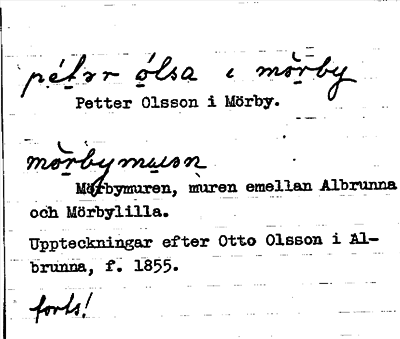 pétər ólsa i mörby
Petter Olsson i Mörby.
mörbymusn
Mörbymuren, muren emellan Albrunna
och Mörbylilla.
Uppteckningar efter Otto Olsson i Al-
brunna, f. 1855.
forts!